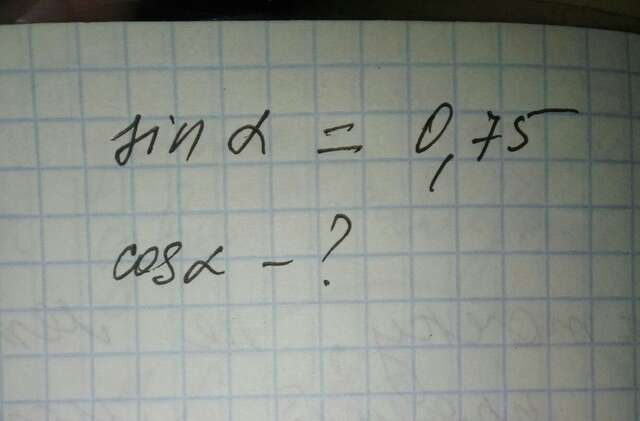 sin α = 0,75
cos α - ?